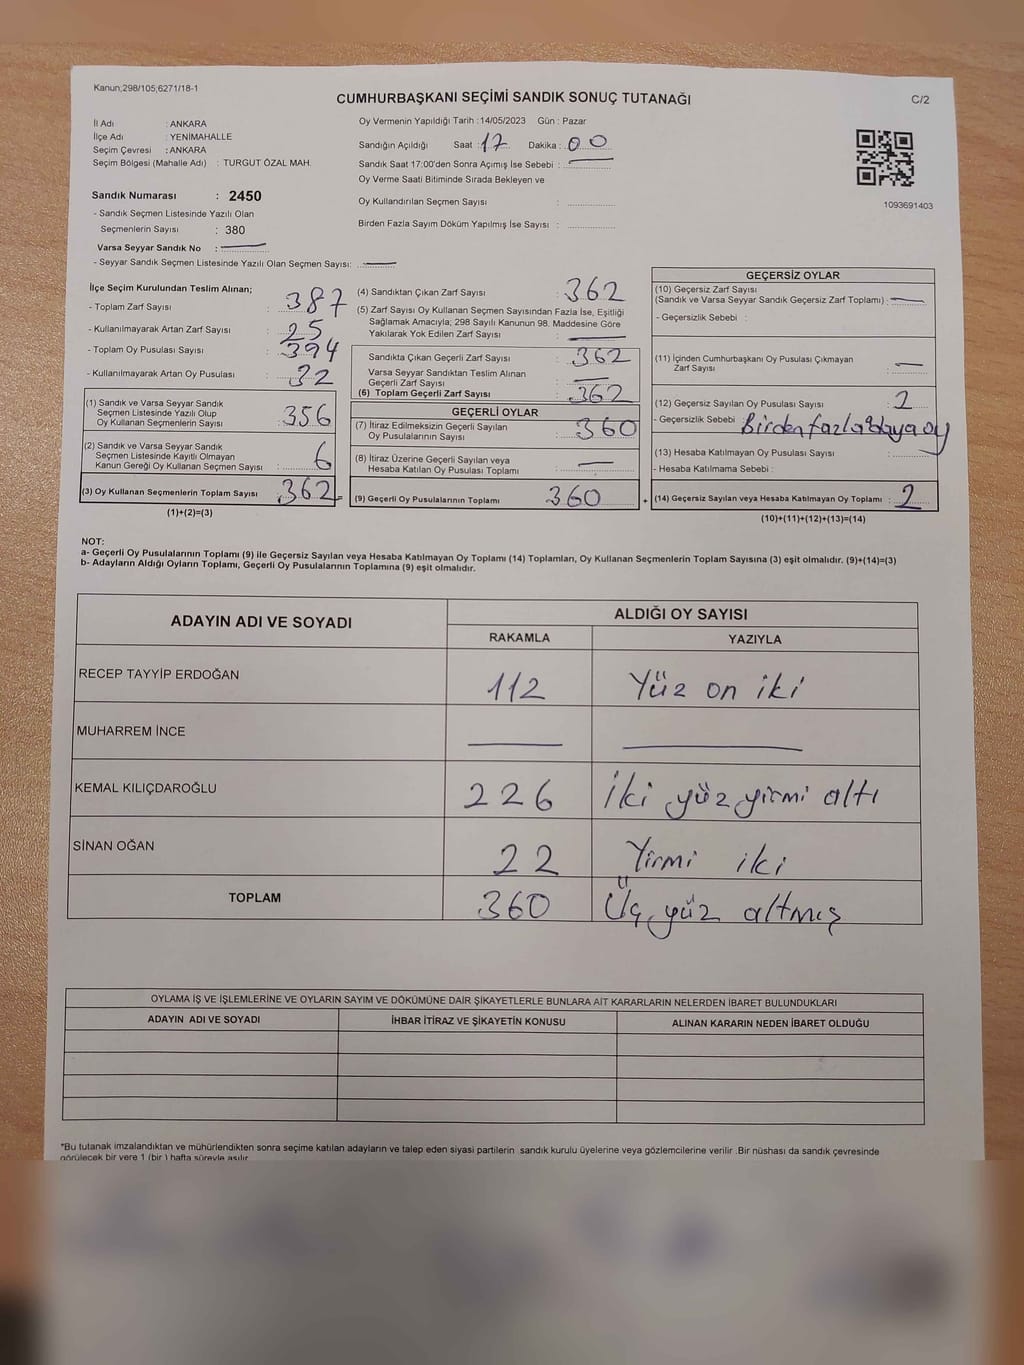 Kanun;298/105;6271/18-1
CUMHURBAŞKANI SEÇİMİ SANDIK SONUÇ TUTANAĞI
C/2
İl Adı : ANKARA
İlçe Adı : YENİMAHALLE
Seçim Çevresi : ANKARA
Seçim Bölgesi (Mahalle Adı) : TURGUT ÖZAL MAH.
Sandık Numarası : 2450
- Sandık Seçmen Listesinde Yazılı Olan
Seçmenlerin Sayısı : 380
Varsa Seyyar Sandık No :
- Seyyar Sandık Seçmen Listesinde Yazılı Olan Seçmen Sayısı:
Oy Vermenin Yapıldığı Tarih :14/05/2023 Gün : Pazar
Sandığın Açıldığı Saat : 17 Dakika : 00
Sandık Saat 17:00'den Sonra Açımış İse Sebebi :
Oy Verme Saati Bitiminde Sırada Bekleyen ve
Oy Kullandırılan Seçmen Sayısı :
Birden Fazla Sayım Döküm Yapılmış İse Sayısı :
1093691403
İlçe Seçim Kurulundan Teslim Alınan;
- Toplam Zarf Sayısı : 387
- Kullanılmayarak Artan Zarf Sayısı : 25
- Toplam Oy Pusulası Sayısı : 394
- Kullanılmayarak Artan Oy Pusulası : 32
(1) Sandık ve Varsa Seyyar Sandık
Seçmen Listesinde Yazılı Olup
Oy Kullanan Seçmenlerin Sayısı : 356
(2) Sandık ve Varsa Seyyar Sandık
Seçmen Listesinde Kayıtlı Olmayan
Kanun Gereği Oy Kullanan Seçmen Sayısı : 6
(3) Oy Kullanan Seçmenlerin Toplam Sayısı : 362
(1)+(2)=(3)
(4) Sandıktan Çıkan Zarf Sayısı : 362
(5) Zarf Sayısı Oy Kullanan Seçmen Sayısından Fazla İse, Eşitliği
Sağlamak Amacıyla; 298 Sayılı Kanunun 98. Maddesine Göre
Yakılarak Yok Edilen Zarf Sayısı :
Sandıkta Çıkan Geçerli Zarf Sayısı : 362
Varsa Seyyar Sandıktan Teslim Alınan
Geçerli Zarf Sayısı :
(6) Toplam Geçerli Zarf Sayısı : 362
GEÇERLİ OYLAR
(7) İtiraz Edilmeksizin Geçerli Sayılan
Oy Pusulalarının Sayısı : 360
(8) İtiraz Üzerine Geçerli Sayılan veya
Hesaba Katılan Oy Pusulası Toplamı :
(9) Geçerli Oy Pusulalarının Toplamı 360
+
GEÇERSİZ OYLAR
(10) Geçersiz Zarf Sayısı
(Sandık ve Varsa Seyyar Sandık Geçersiz Zarf Toplamı) :
- Geçersizlik Sebebi :
(11) İçinden Cumhurbaşkanı Oy Pusulası Çıkmayan
Zarf Sayısı :
(12) Geçersiz Sayılan Oy Pusulası Sayısı : 2
- Geçersizlik Sebebi Birden fazla adaya oy
(13) Hesaba Katılmayan Oy Pusulası Sayısı :
- Hesaba Katılmama Sebebi :
(14) Geçersiz Sayılan veya Hesaba Katılmayan Oy Toplamı : 2
(10)+(11)+(12)+(13)=(14)
NOT:
a- Geçerli Oy Pusulalarının Toplamı (9) ile Geçersiz Sayılan veya Hesaba Katılmayan Oy Toplamı (14) Toplamları, Oy Kullanan Seçmenlerin Toplam Sayısına (3) eşit olmalıdır. (9)+(14)=(3)
b- Adayların Aldığı Oyların Toplamı, Geçerli Oy Pusulalarının Toplamına (9) eşit olmalıdır.
ADAYIN ADI VE SOYADI ALDIĞI OY SAYISI
RAKAMLA YAZIYLA
RECEP TAYYİP ERDOĞAN 112 Yüz on iki
MUHARREM İNCE
KEMAL KILIÇDAROĞLU 226 İki yüz yirmi altı
SİNAN OĞAN 22 Yirmi iki
TOPLAM 360 Üç yüz altmış
OYLAMA İŞ VE İŞLEMLERİNE VE OYLARIN SAYIM VE DÖKÜMÜNE DAİR ŞİKAYETLERLE BUNLARA AİT KARARLARIN NELERDEN İBARET BULUNDUKLARI
ADAYIN ADI VE SOYADI İHBAR İTİRAZ VE ŞİKAYETİN KONUSU ALINAN KARARIN NEDEN İBARET OLDUĞU
*Bu tutanak imzalandıktan ve mühürlendikten sonra seçime katılan adayların ve talep eden siyasi partilerin sandık kurulu üyelerine veya gözlemcilerine verilir .Bir nüshası da sandık çevresinde
görülecek bir yere 1 (bir ) hafta süreyle asılır.